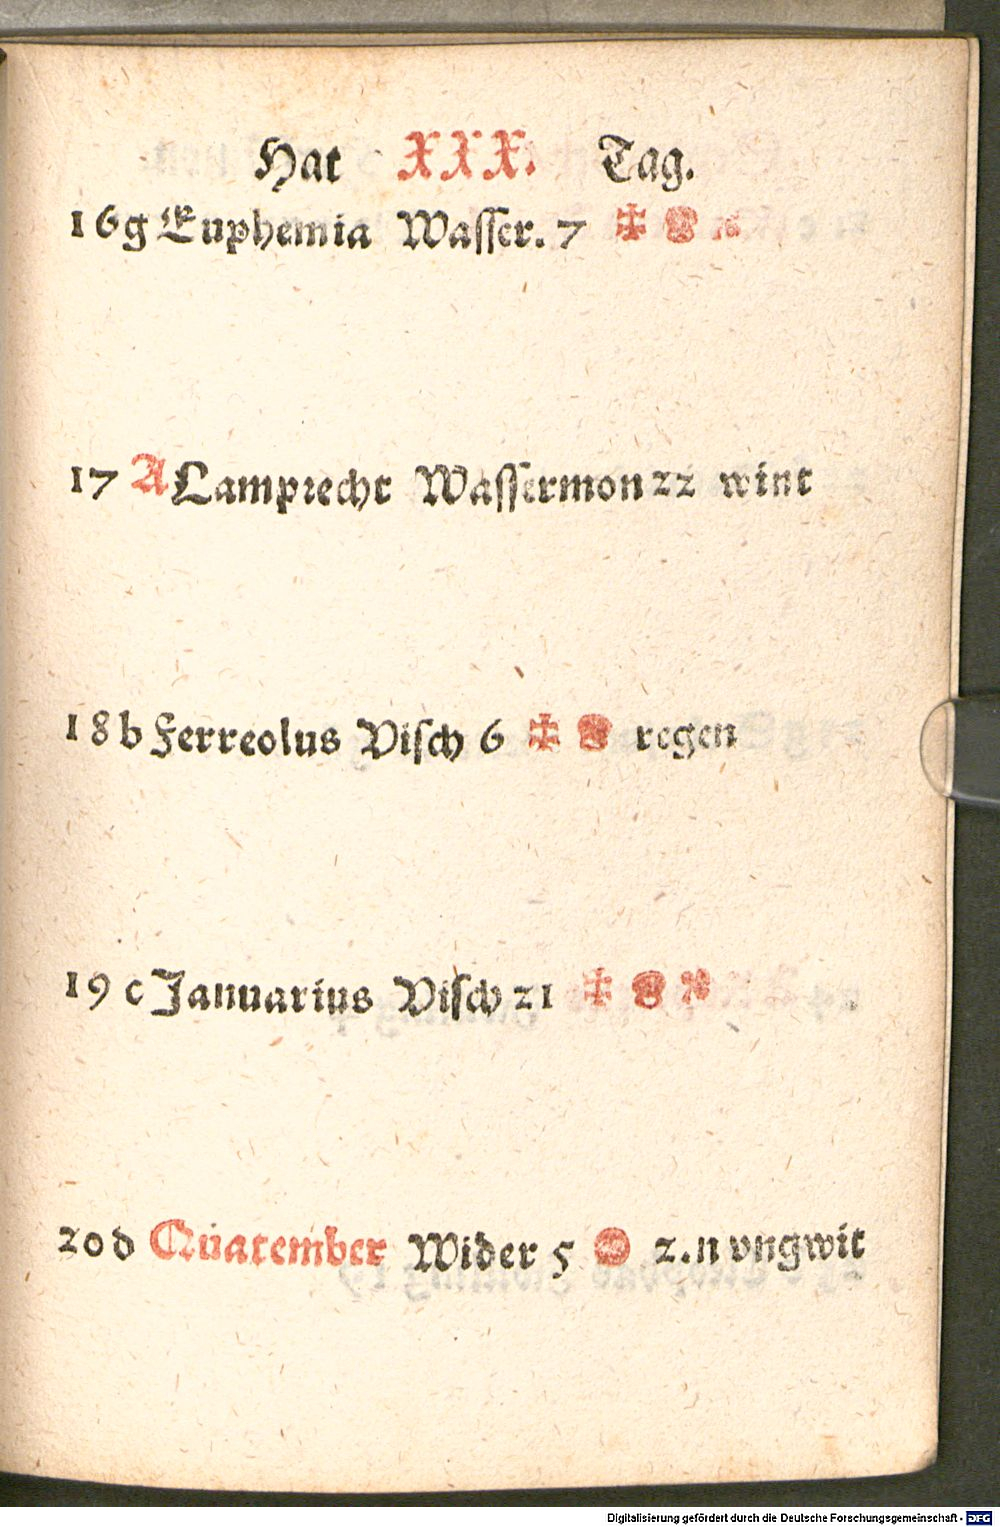 Hat XXX. Tag.
16 g Euphemia Wasser. 7
17 A Lamprecht Wassermon 22 wint
18 b Ferreolus Visch 6 regen
19 c Januarius Visch 21
20 d Quatember Wider 5 2.n vngwit
Digitalisierung gefördert durch die Deutsche Forschungsgemeinschaft - DFG